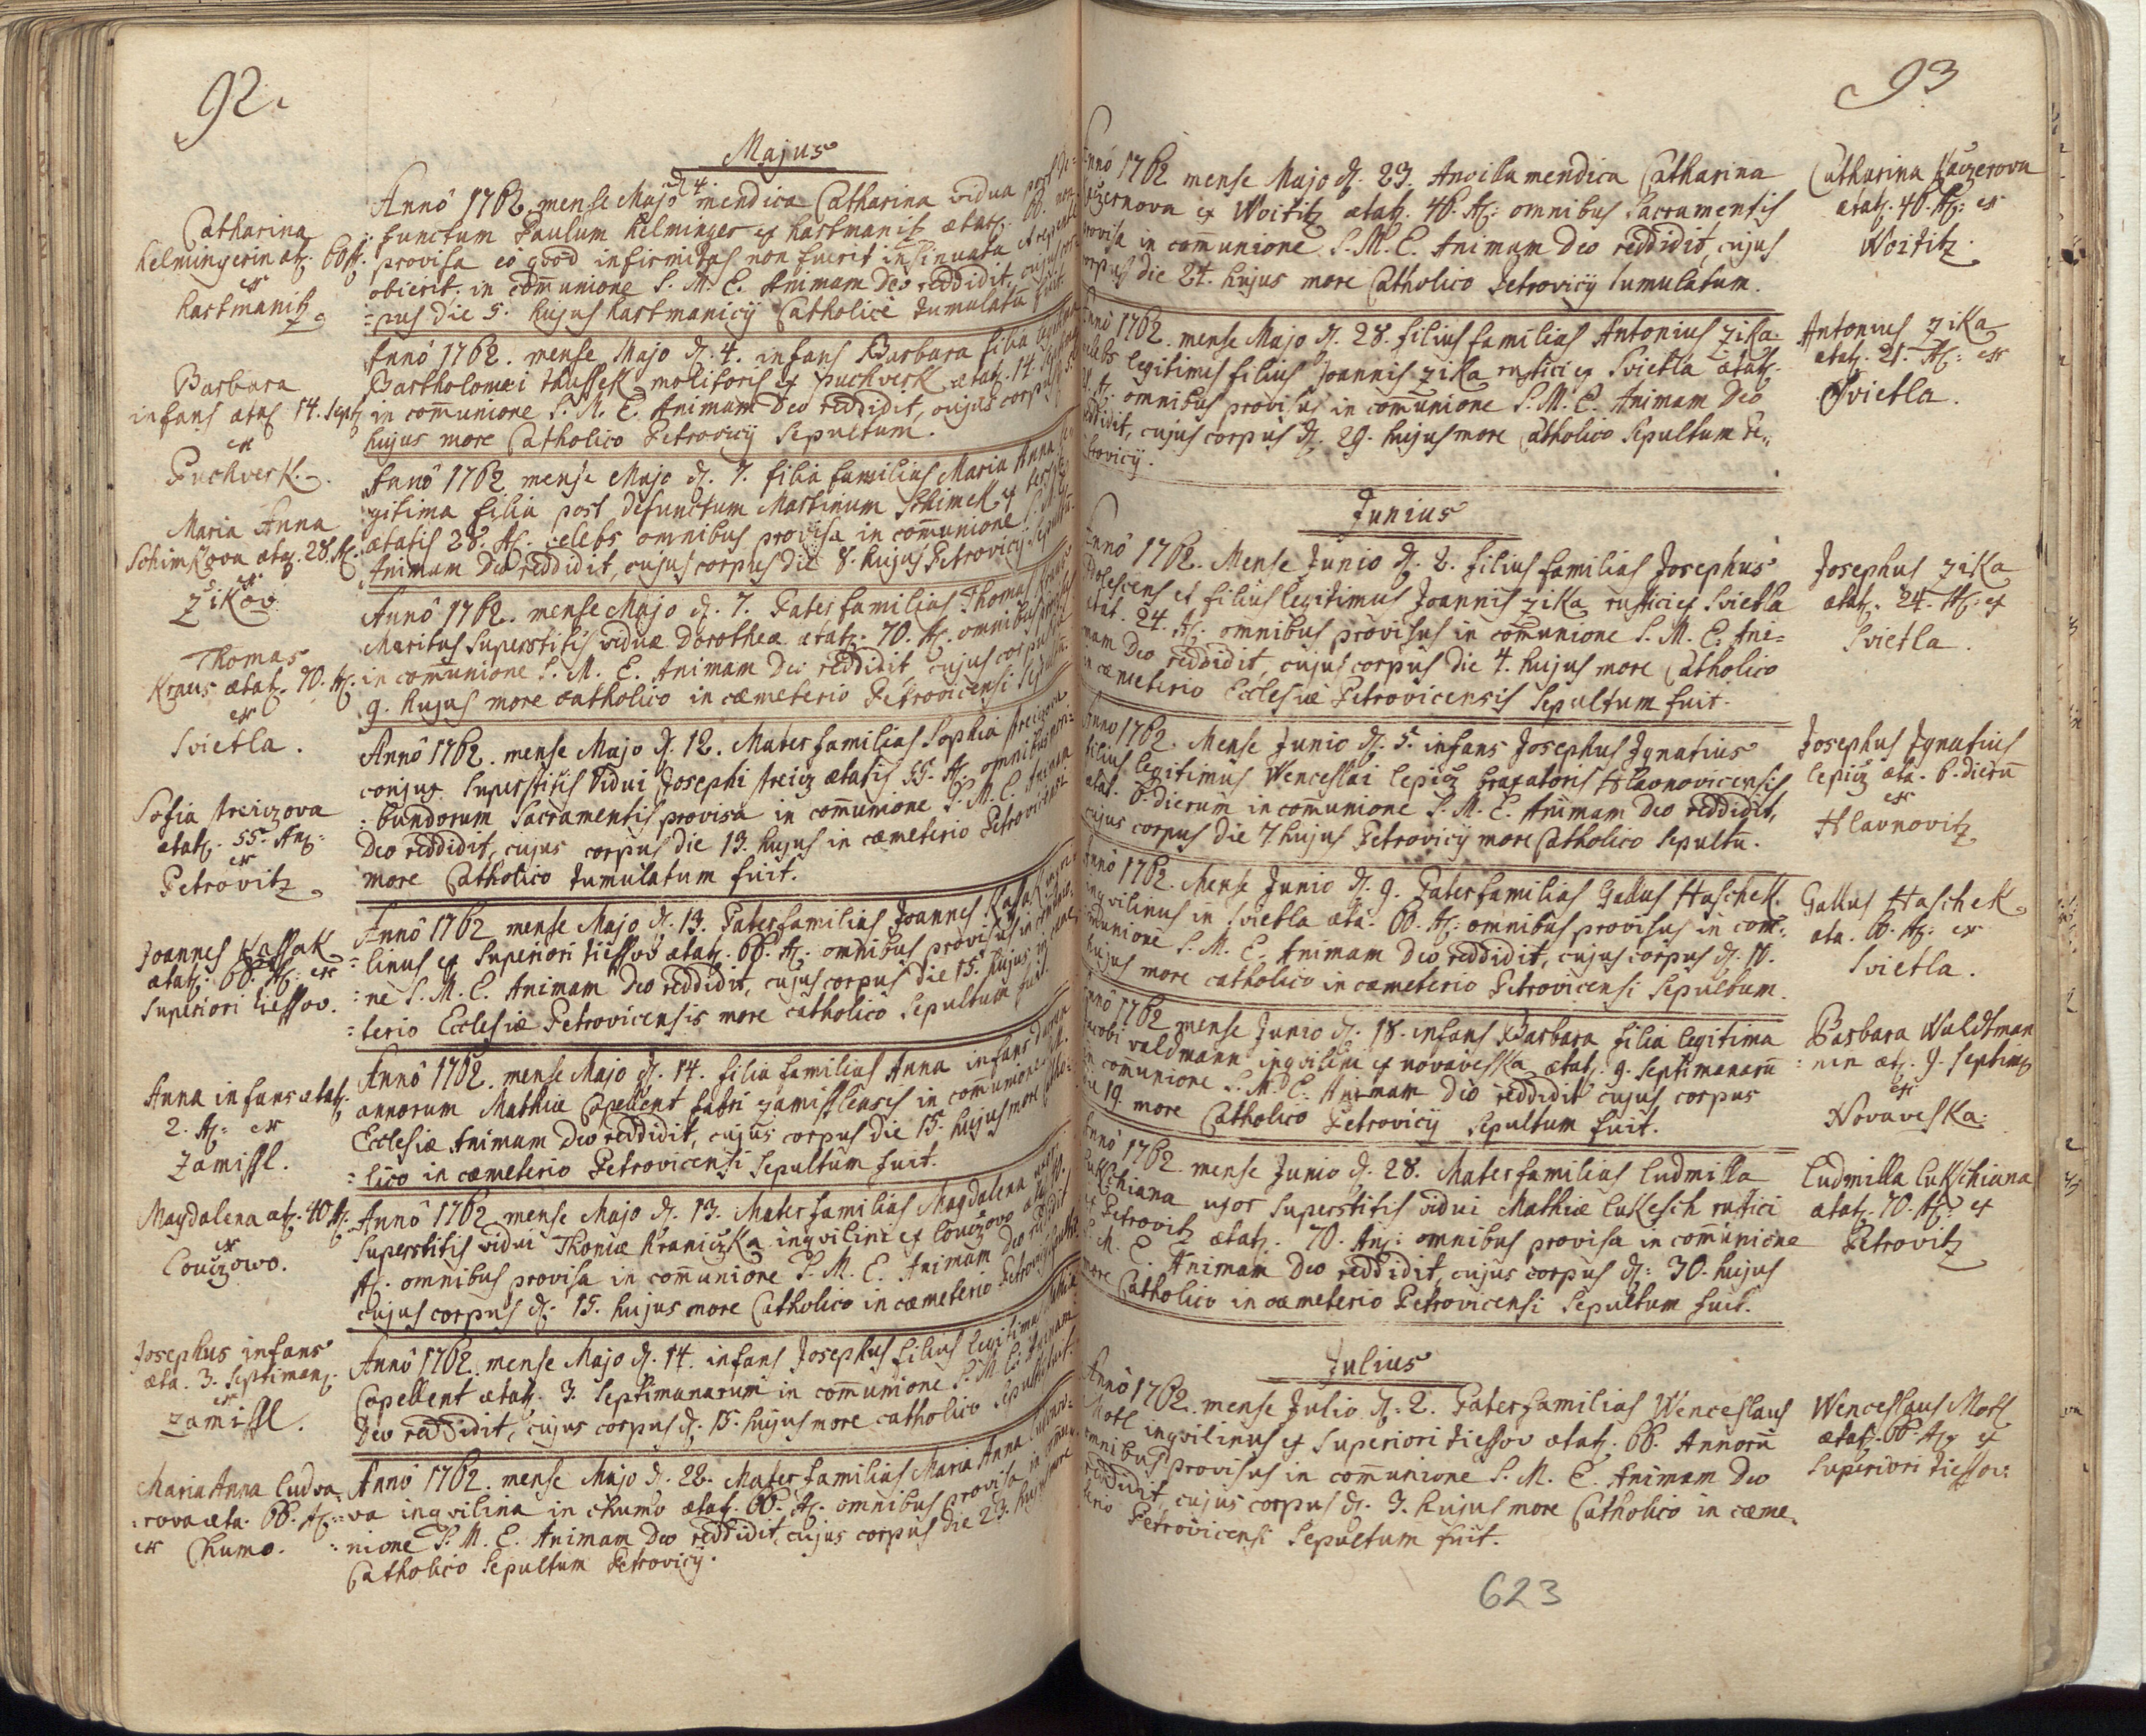 92.
Majus
Catharina
Helmingerin æt. 60 A.
ex
Hartmanitz.
Annô 1762. mense Majo d. 4. mendica Catharina vidua post de=
functum Paulum Helminger ex Hartmanitz ætat. 60. non
provisa eo qvod infirmitas non fuerit insinuata et repente
obierit. in com̄unione S. M. E. Animam Deo reddidit, cujus cor=
=pus die 5. hujus Hartmanicij Catholicè tumulatū fuit.
Barbara
infans ætat 14. Sept
ex
Puchverk.
Annô 1762. mense Majo d. 4. infans Barbara filia legitima
Bartholomei molitoris ex Puchverk ætat. 14. Septiman
in com̄unione S. M. E. Animam Deo reddidit, cujus corpus
hujus more Catholico Petrovicij Sepultum.
Maria Anna
Schimkova ætat. 28. A.
ex
Zikov
Annô 1762 mense Majo d. 7. filia familias Maria Anna le=
gitima filia post defunctum Martinum Schimek ex
ætatis 28. A. cœlebs omnibus provisa in com̄unione S. M. E.
Animam Deo reddidit, cujus corpus die 8. hujus Petrovicij Sepultū.
Thomas
Kraus ætat. 70. A.
ex
Svietla.
Annô 1762. mense Majo d. 7. Pater familias Thomas Kraus
Maritus Superstitis viduæ Dorotheæ ætat. 70. A. omnibus provisus
in com̄unione S. M. E. Animam Deo reddidit, cujus corpus
9. hujus more catholico in cæmeterio Petrovicensi Sepultū.
Sofia Streiczova
ætat. 55. An:
ex
Petrovitz
Annô 1762. mense Majo d. 12. Mater familias Sophia Streiczova
conjux Superstitis Vidui Josephi Streicz ætatis 55. A. omnibus mori=
:bundorum Sacramentis provisa in com̄unione S. M. E. Animam
Deo reddidit, cujus corpus die 13. hujus in cæmeterio Petrovicensi
more Catholico tumulatum fuit.
Joannes Kassak
ætat: 66. A: ex
Superiori tiessov.
Annô 1762 mense Majo d. 13. Pater familias Joannes Kassak inqvi=
=linus ex Superiori tiessov ætat. 66. A. omnibus provisus in com̄unio=
=ne S. M. E. Animam Deo reddidit, cujus corpus die 15. hujus in cæme=
=terio Ecclesiæ Petrovicensis more catholico Sepultum fuit.
Anna infans ætat.
2. A: ex
Zamissl.
Annô 1762. mense Majo d. 14. filia familias Anna infans duorum
annorum Mathiæ Capellent fabri Zamisslensis in com̄unione S. M.
Ecclesiæ Animam Deo reddidit, cujus corpus die 15. hujus more catho=
=lico in cæmeterio Petrovicensi Sepultum fuit.
Magdalena æt. 40 A:
ex
Couczowo.
Annô 1762 mense Majo d. 13. Mater familias Magdalena uxor
Superstitis vidui Thomæ Kraniczka inqvilini ex Couczovo ætat. 40.
A. omnibus provisa in com̄unione S. M. E. Animam Deo reddidit
cujus corpus d: 15. hujus more Catholico in cæmeterio Petrovicensi Sepultū.
Josephus infans
æta. 3. Septiman.
ex
Zamissl.
Annô 1762. mense Majo d. 14. infans Josephus filius legitimus Mathiæ
Capellent ætat. 3. Septimanarum in com̄unione S. M. E. Animam
Deo reddidit, cujus corpus d: 15. hujus more catholico Sepultū fuit.
Maria Anna Ludva=
:rova æta. 66. A:
ex Chumo.
Annô 1762. mense Majo d. 22. Mater familias Maria Anna Ludvaro=
=va inqvilina in Chumo ætat. 66. A. omnibus provisa in com̄u=
=nione S. M. E. Animam Deo reddidit, cujus corpus die 23. hujus more
Catholico Sepultum Petrovicij.
93
Annô 1762 mense Majo d. 23. Ancilla mendica Catharina
Kaczernova ex Woititz ætat. 46. A: omnibus Sacramentis
provisa in com̄unione S. M. E. Animam Deo reddidit, cujus
corpus die 24. hujus more Catholico Petrovicij tumulatum.
Catharina Kaczerova
ætat. 46. A: ex
Woititz.
Annô 1762. mense Majo d. 28. filius familias Antonius Zika
cælebs legitimus filius Joannis Zika rustici ex Svietla ætat.
21. A. omnibus provisus in com̄unione S. M. E. Animam Deo
reddidit, cujus corpus d. 29. hujus more Catholico Sepultum Pe=
trovicij.
Antonius Zika
ætat. 21. A: ex
Svietla.
Junius
Annô 1762. Mense Junio d. 2. filius familias Josephus
adolescens et filius legitimus Joannis Zika rustici ex Svietla
ætat. 24. A. omnibus provisus in com̄unione S. M. E. Ani=
mam Deo reddidit, cujus corpus die 4. hujus more Catholico
in cæmeterio Ecclesiæ Petrovicensis Sepultum fuit.
Josephus Zika
ætat. 24. A: ex
Svietla.
Anno 1762. Mense Junio d. 5. infans Josephus Ignatius
filius legitimus Wenceslai Lepicz braxatoris Hlavnovicensis
ætat. 6. dierum in com̄unione S. M. E. Animam Deo reddidit,
cujus corpus die 7. hujus Petrovicij more Catholico Sepultū.
Josephus Ignatius
Lepicz æta. 6. dierū
ex
Hlavnovitz
Annô 1762. Mense Junio d. 9. Pater familias Gallus Haschek
inqvilinus in Svietla æta. 60. A: omnibus provisus in com=
munione S. M. E. Animam Deo reddidit, cujus corpus d. 10.
hujus more catholico in cæmeterio Petrovicensi Sepultum.
Gallus Haschek
æta. 60. A: ex
Svietla.
Annô 1762 mense Junio d. 18. infans Barbara filia legitima
Jacobi Valdmann inqvilini ex Novaveska ætat. 9. Septimanarū
in com̄unione S. M. E. Animam Deo reddidit cujus corpus
die 19. more Catholico Petrovicij Sepultum fuit.
Barbara Waldtman
:nin æt. 9. Septim
ex
Novaveska:
Annô 1762 mense Junio d. 28. Mater familias Ludmilla
Lukschiana uxor Superstitis vidui Mathiæ Lukesch rustici
ex Petrovitz ætat. 70. An: omnibus provisa in com̄unione
S. M. E. Animam Deo reddidit, cujus corpus d: 30. hujus
more Catholico in cæmeterio Petrovicensi Sepultum fuit.
Ludmilla Lukschiana
ætat. 70. A: ex
Petrovitz
Julius
Annô 1762. mense Julio d: 2. Pater familias Wenceslaus
Motl inqvilinus ex Superiori tiessov ætat. 66. Annorū
omnibus provisus in com̄unione S. M. E. Animam Deo
reddidit, cujus corpus d. 3. hujus more Catholico in cæme=
terio Petrovicensi Sepultum fuit.
Wenceslaus Motl
ætat. 66. A: ex
Superiori tiessov:
623